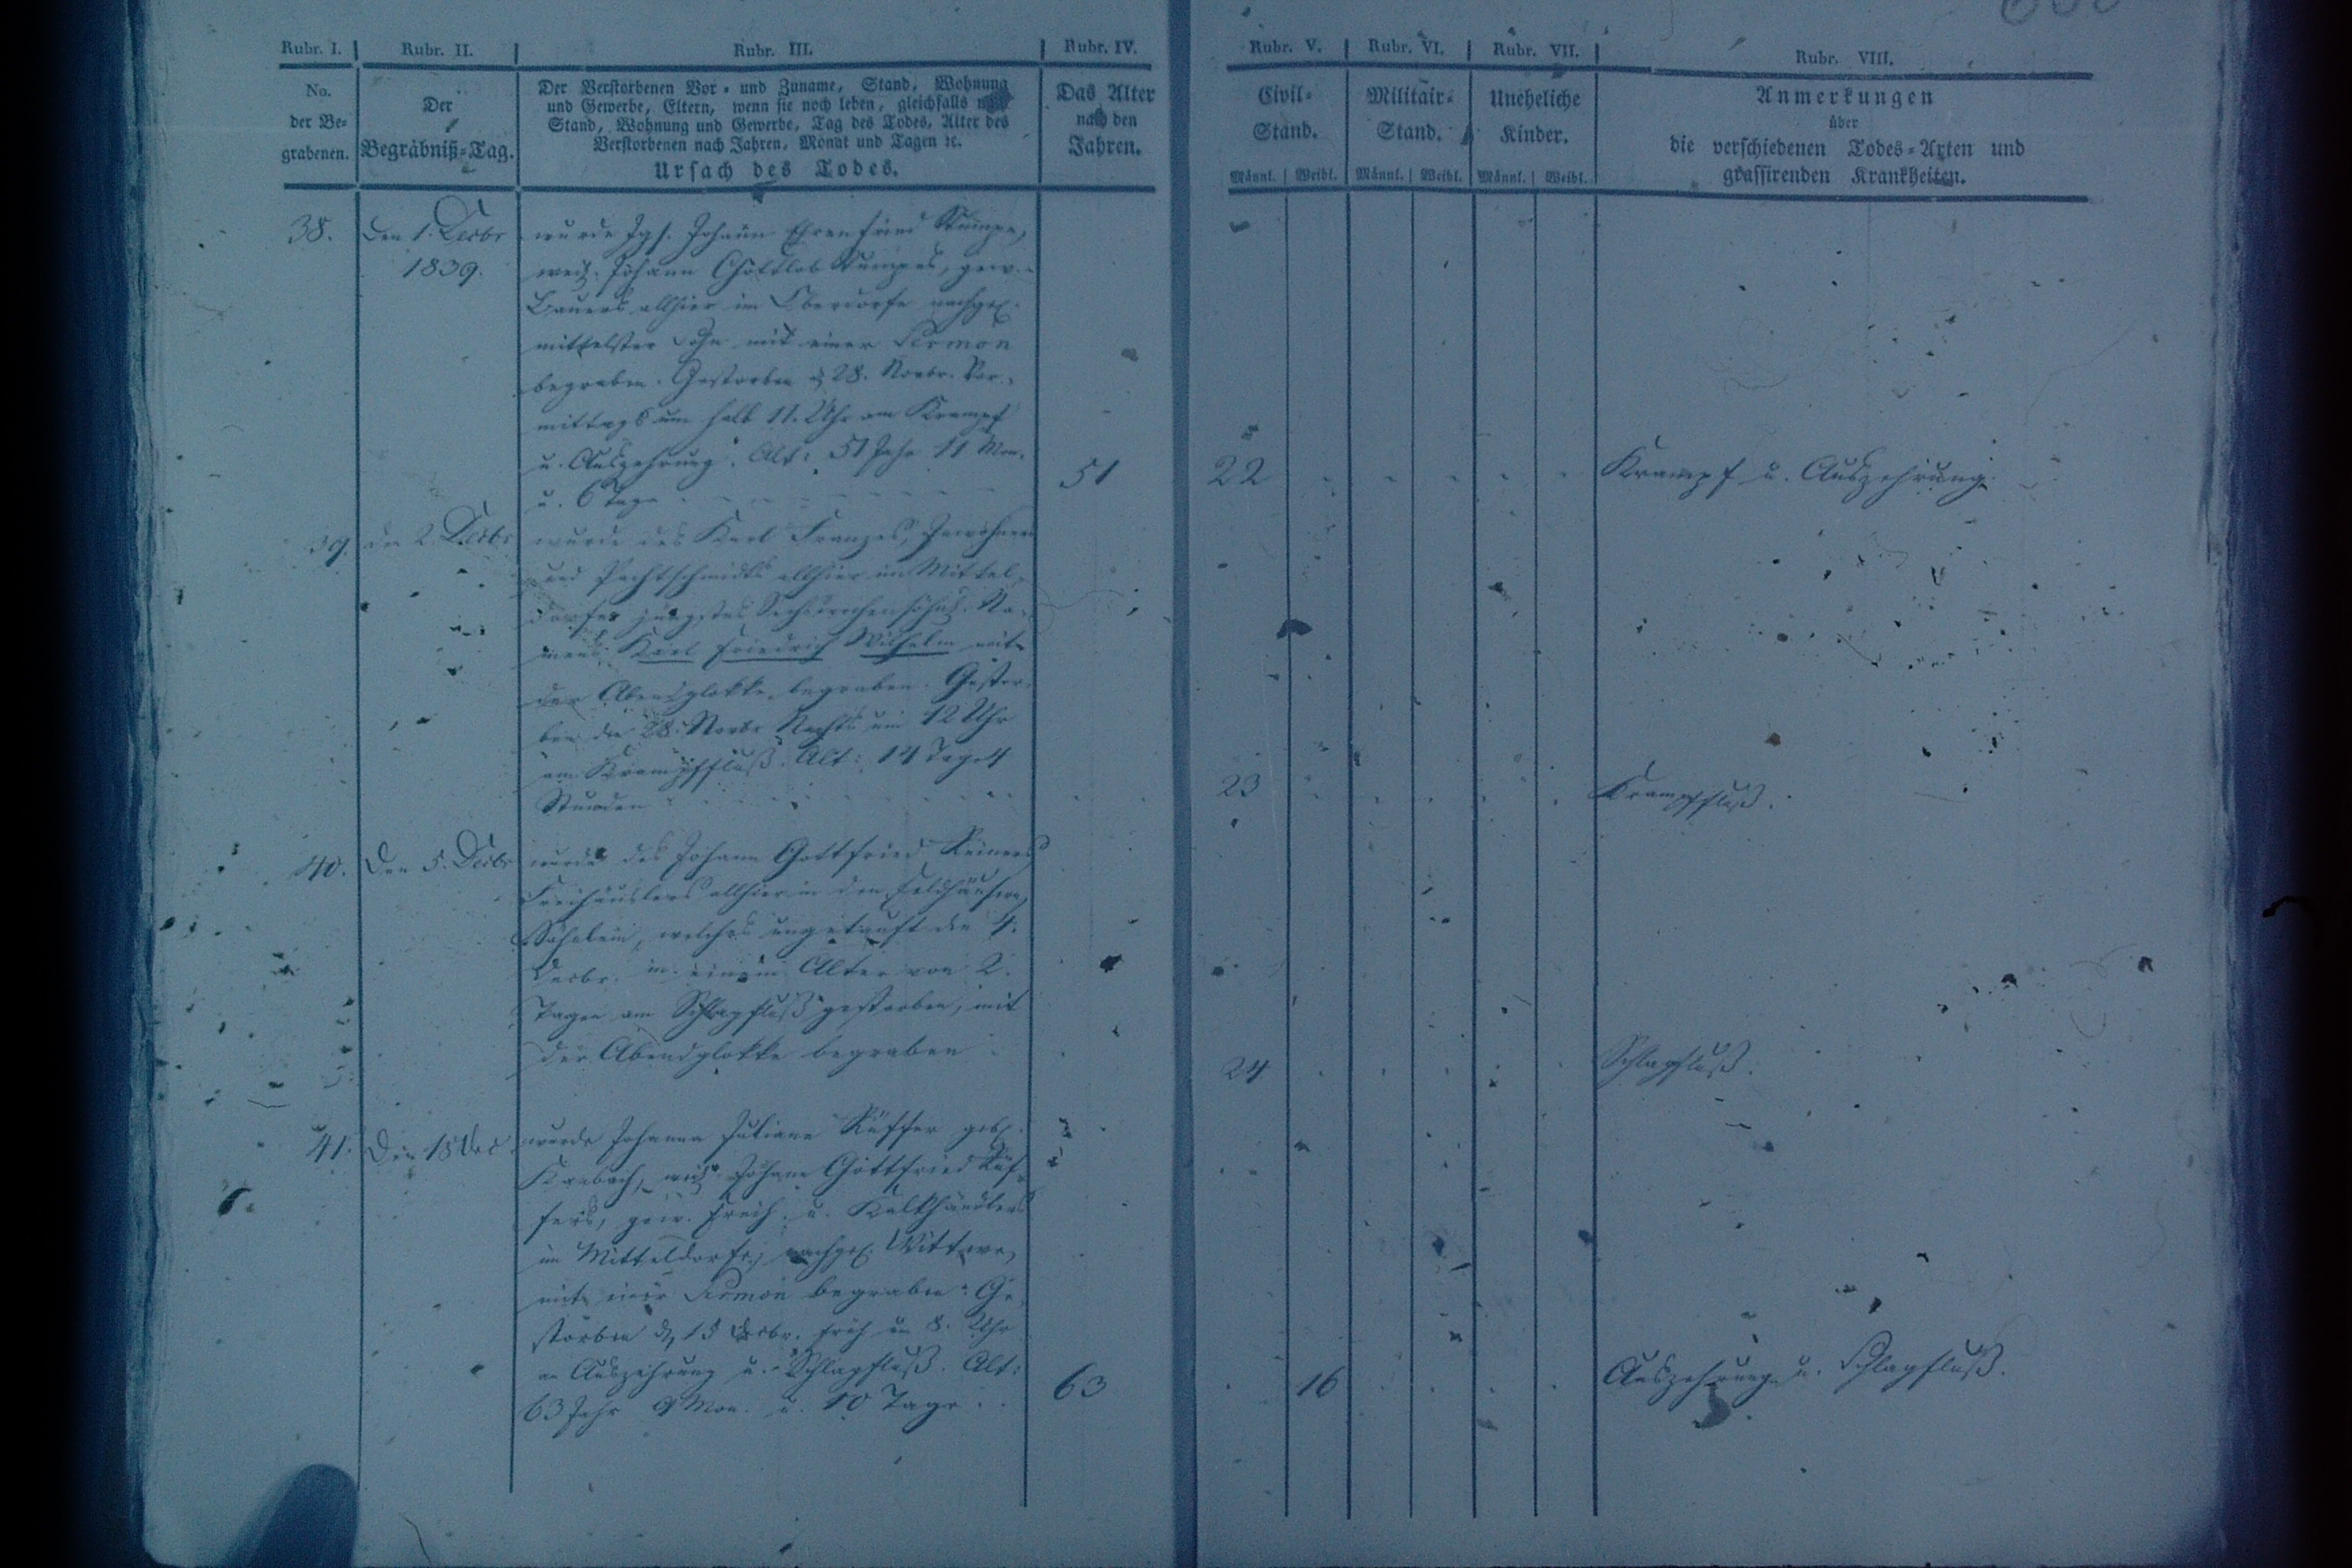 Rubr. I. Rubr. II. Rubr. III. Rubr. IV. Rubr. V. Rubr. VI. Rubr. VII. Rubr. VIII.
No.
der Be=
grabenen.
Der
Begräbniß=Tag.
Der Verstorbenen Vor= und Zuname, Stand, Wohnung
und Gewerbe, Eltern, wenn sie noch leben, gleichfalls nach
Stand, Wohnung und Gewerbe, Tag des Todes, Alter des
Verstorbenen nach Jahren, Monat und Tagen ꝛc.
Ursach des Todes.
Das Alter
nach den
Jahren.
Civil=
Stand.
Männl. Weibl.
Militair=
Stand.
Männl. Weibl.
Uneheliche
Kinder.
Männl. Weibl.
Anmerkungen
über
die verschiedenen Todes=Arten und
grassirenden Krankheiten.
38. Den 1. Decbr
1839.
wurde Jgs. Johann Ehrenfried
weil. Johann Gottlob gew.
Bauers allhier im Oberdorfe nachgel.
mittelster Sohn mit einer Sermon
begraben. Gestorben d. 28. Novbr. Vor=
mittags um halb 11. Uhr am Krampf
u. Auszehrung. Alt: 51 Jahr 11 Mon.
u. 6 Tage
51 22 Krampf u. Auszehrung.
39. den 2. Decbr wurde des Karl Franzes,
und Pachtschmidts allhier im Mittel=
dorfes jüngstes Na=
mens: Karl Friedrich Wilhelm mit
der Abendglokke begraben. Gestor=
ben den 28. Novbr Nachts um 12 Uhr
am Krampffluß. Alt: 14 Tage 4
Stunden
23 Krampffluß.
40. Den 5. Decbr wurde des Johann Gottfried
Freihäuslers allhier in den Feldhäusern,
Söhnlein, welches ungetauft den 4.
Decbr. in einem Alter von 2.
Tagen am Schlagfluß gestorben, mit
der Abendglokke begraben
24 Schlagfluß.
41. Den 18 Dec. wurde Johanna Juliane Küffer geb.
weil. Johann Gottfried Küf=
fers, gew. Freih. u. Kalkhändlers
im Mitteldorfe, nachgel. Wittwe,
mit einer Sermon begraben. Ge=
storben d. 15 Decbr. früh um 8. Uhr
an Auszehrung u. Schlagfluß. Alt:
63 Jahr 9 Mon. u. 10 Tage
63 16 Auszehrung u. Schlagfluß.